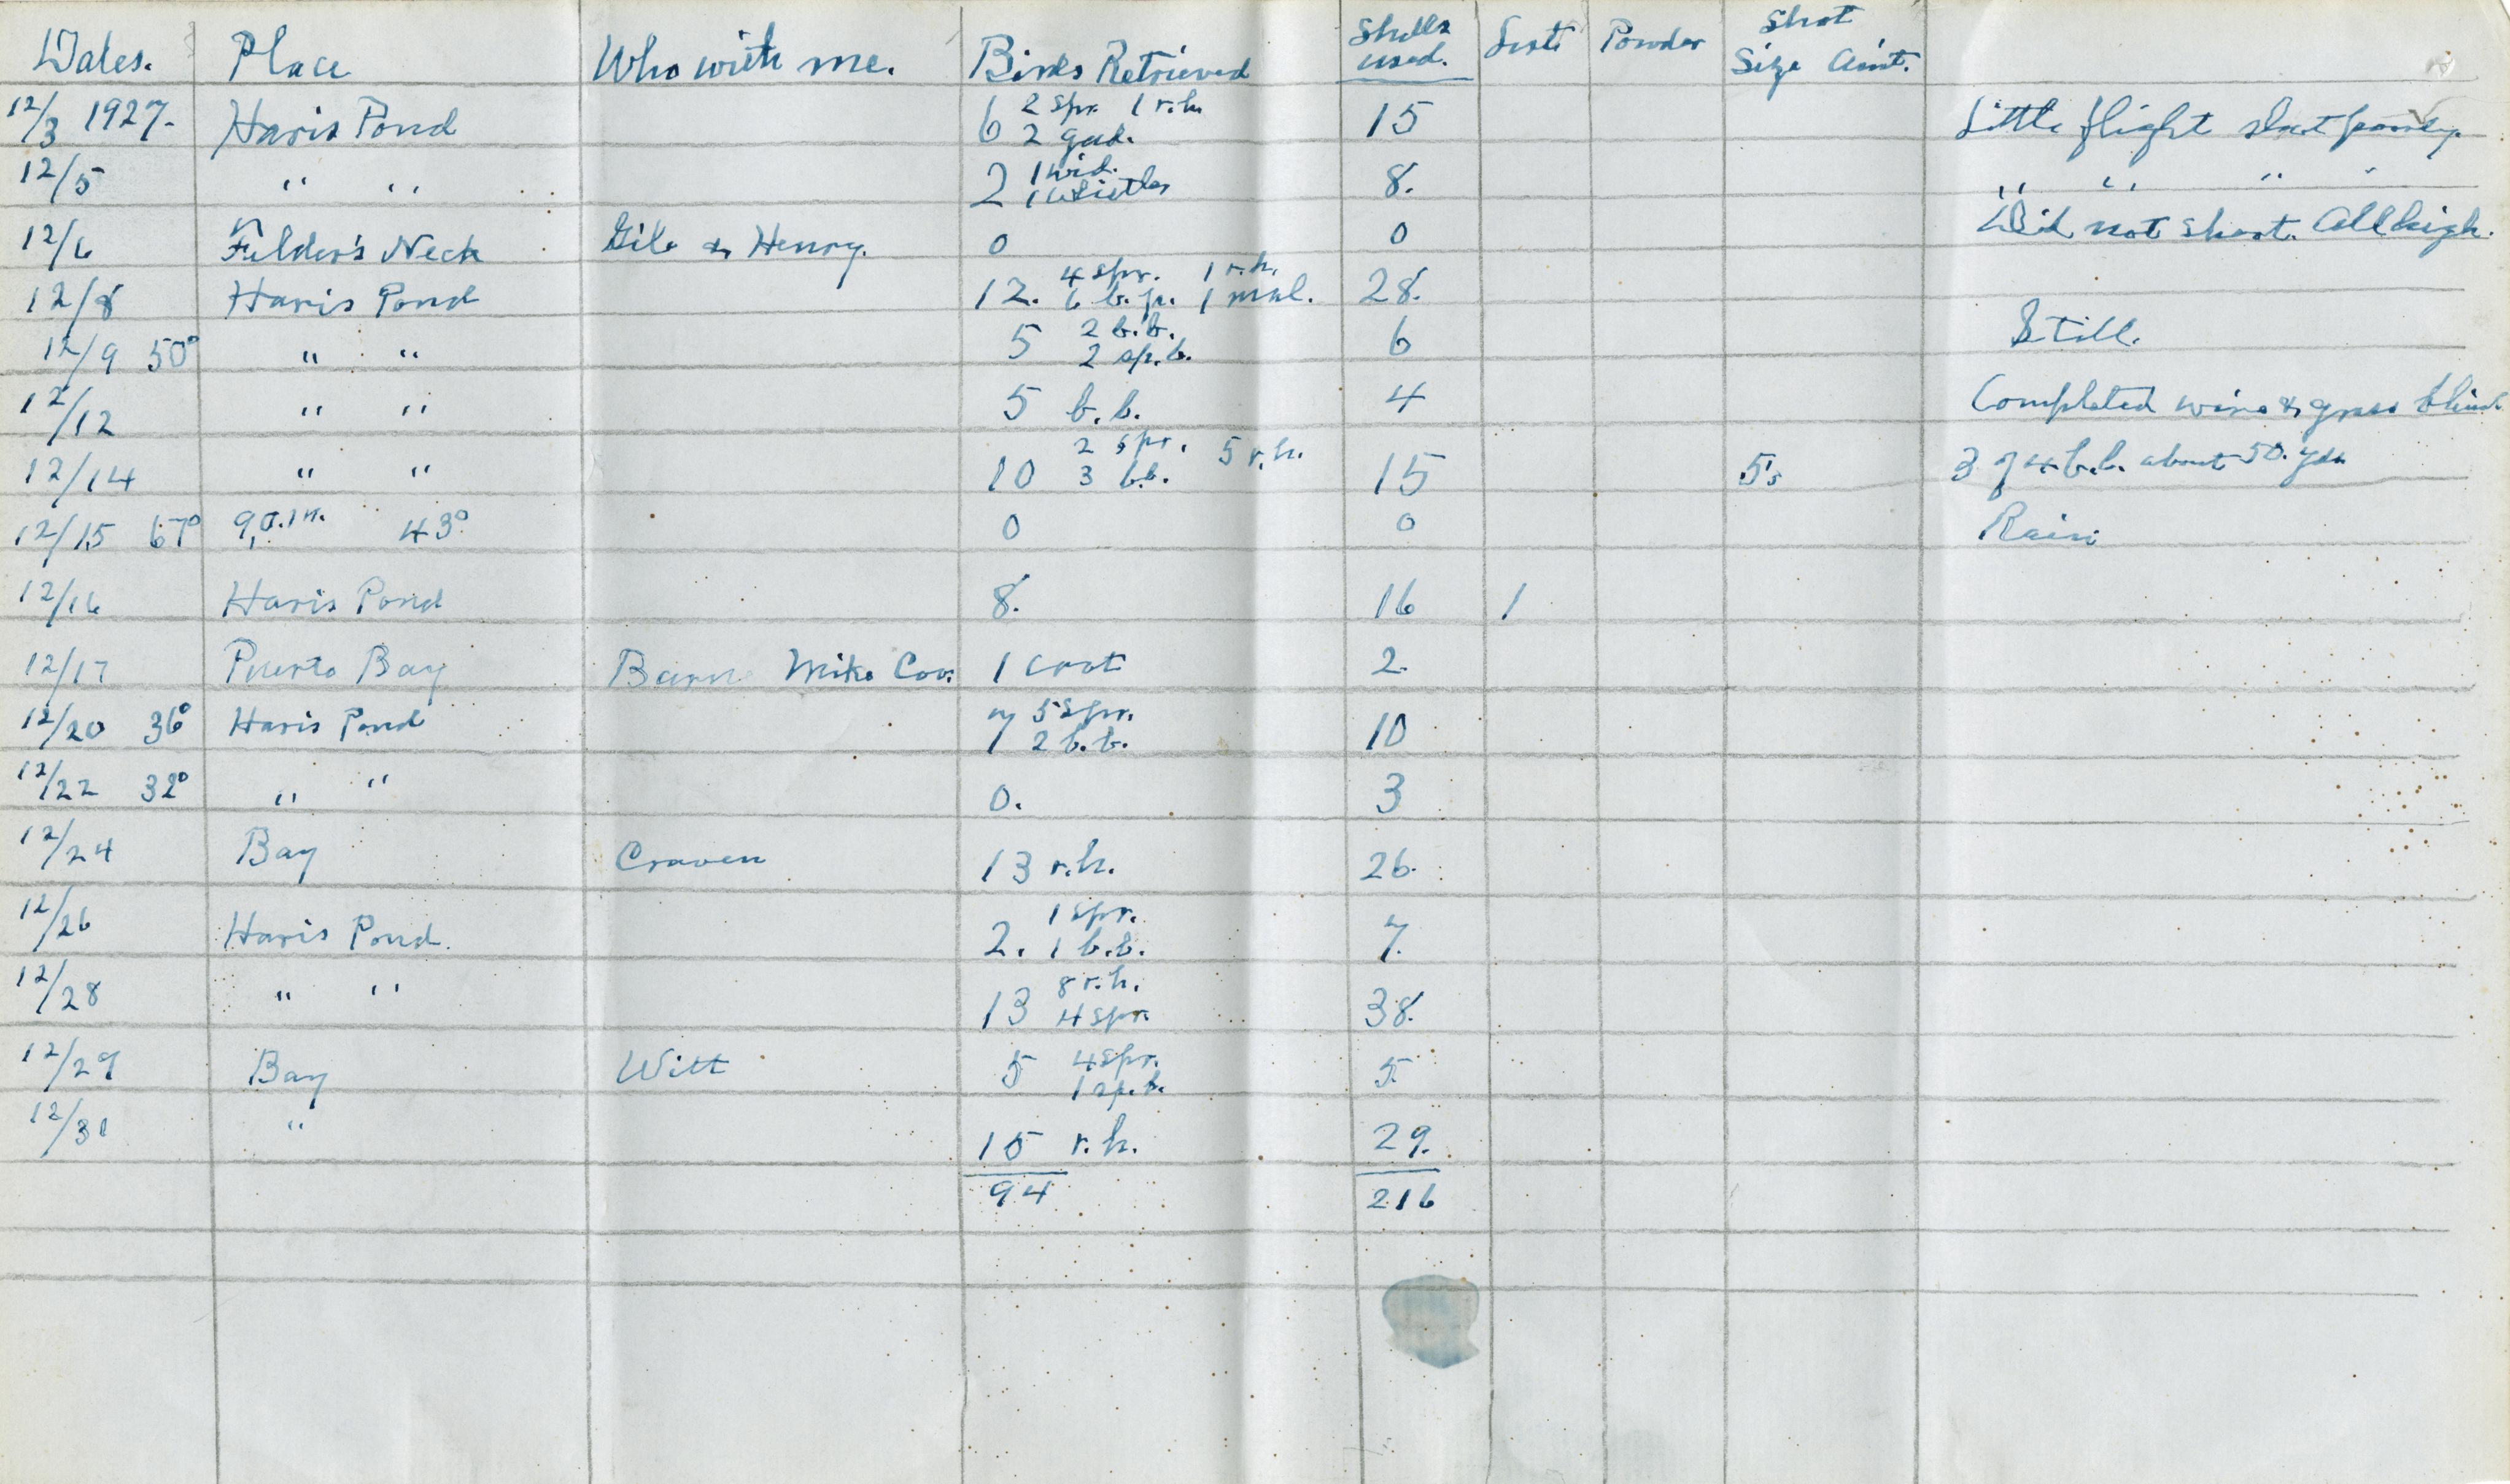 Dates. Place Who with me. Birds Retrieved Shells used. Lost Powder Shot Size Am't.
12/3 1927. Haris Pond 6 2 spr. 1 r.h. 2 gad. 15 Little flight shot poorly.
12/5 " " 2 1 wid. 1 whistler 8. " " " "
12/6 Filder's Neck Gile & Henry. 0 0 Did not shoot. All high.
12/8 Haris Pond 12. 4 spr. 1 r.h. 6 b.b. 1 mal. 28.
12/9 50° " " 5 2 b.b. 2 sp.b. 6 Still.
12/12 " " 5 b.b. 4 Completed wire & grass blind
12/14 " " 10 2 spr. 5 r.h. 3 b.b. 15 5s 3 of 4 b.b. about 50. yds
12/15 67° 9 a.m. 43° 0 0 Rain
12/16 Haris Pond 8. 16 1
12/17 Puerto Bay Mike 1 coot 2.
12/20 36° Haris Pond 7 5 spr. 2 b.b. 10
12/22 32° " " 0. 3
12/24 Bay Craven 13 r.h. 26.
12/26 Haris Pond. 2. 1 spr. 1 b.b. 7.
12/28 " " 13 8 r.h. 4 spr. 38.
12/29 Bay Witt 5 4 spr. 1 sp.b. 5.
12/31 " 15 r.h. 29.
94 216